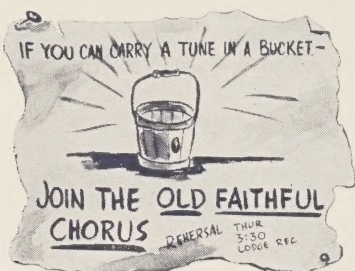 IF YOU CAN CARRY A TUNE IN A BUCKET-
JOIN THE OLD FAITHFUL
CHORUS
REHERSAL THUR
3:30
LODGE REC